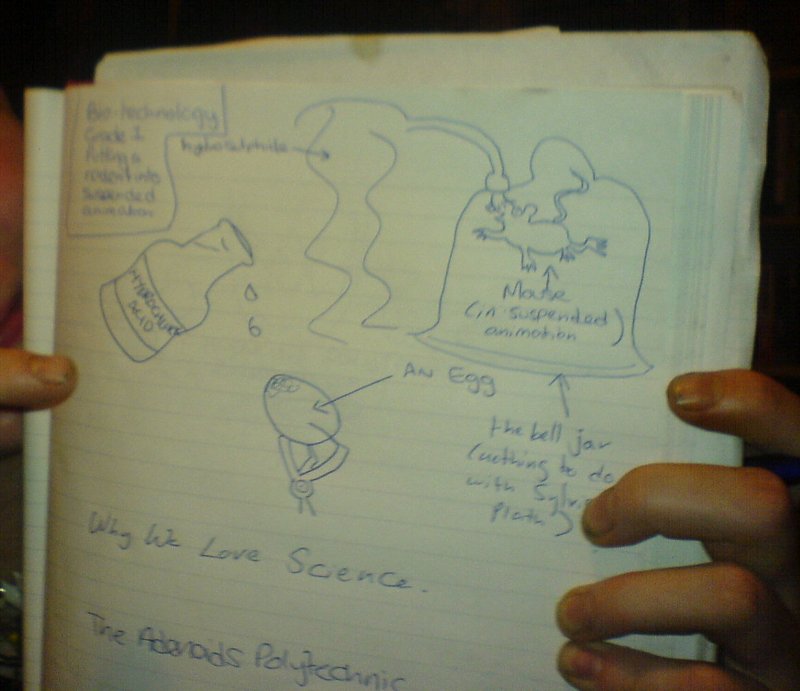 Bio-technology
Grade 1
Putting a
rodent into
suspended
animation
HYDROCHLORIC
ACID
Mouse
(in suspended)
animation
AN EGG
the bell jar
(nothing to do
with Sylvia
Plath)
Why We Love Science.
The Adenoids Polytechnic